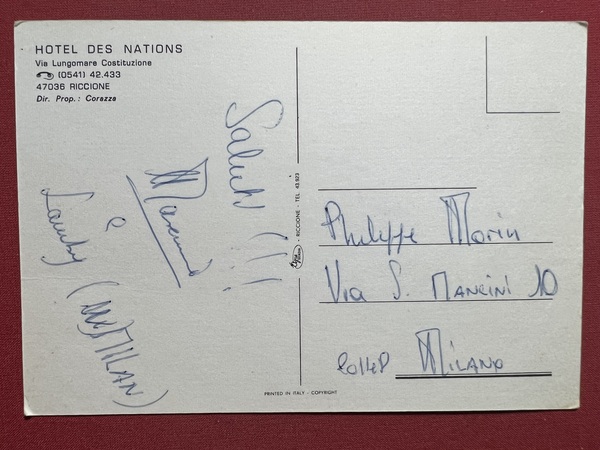 HOTEL DES NATIONS
Via Lungomare Costituzione
(0541) 42.433
47036 RICCIONE
Dir. Prop.: Corazza
Saluti !!!
e
(MILAN)
- RICCIONE - TEL 43.923
Philippe Morin
Via S. Mancini 10
20148 Milano
PRINTED IN ITALY - COPYRIGHT